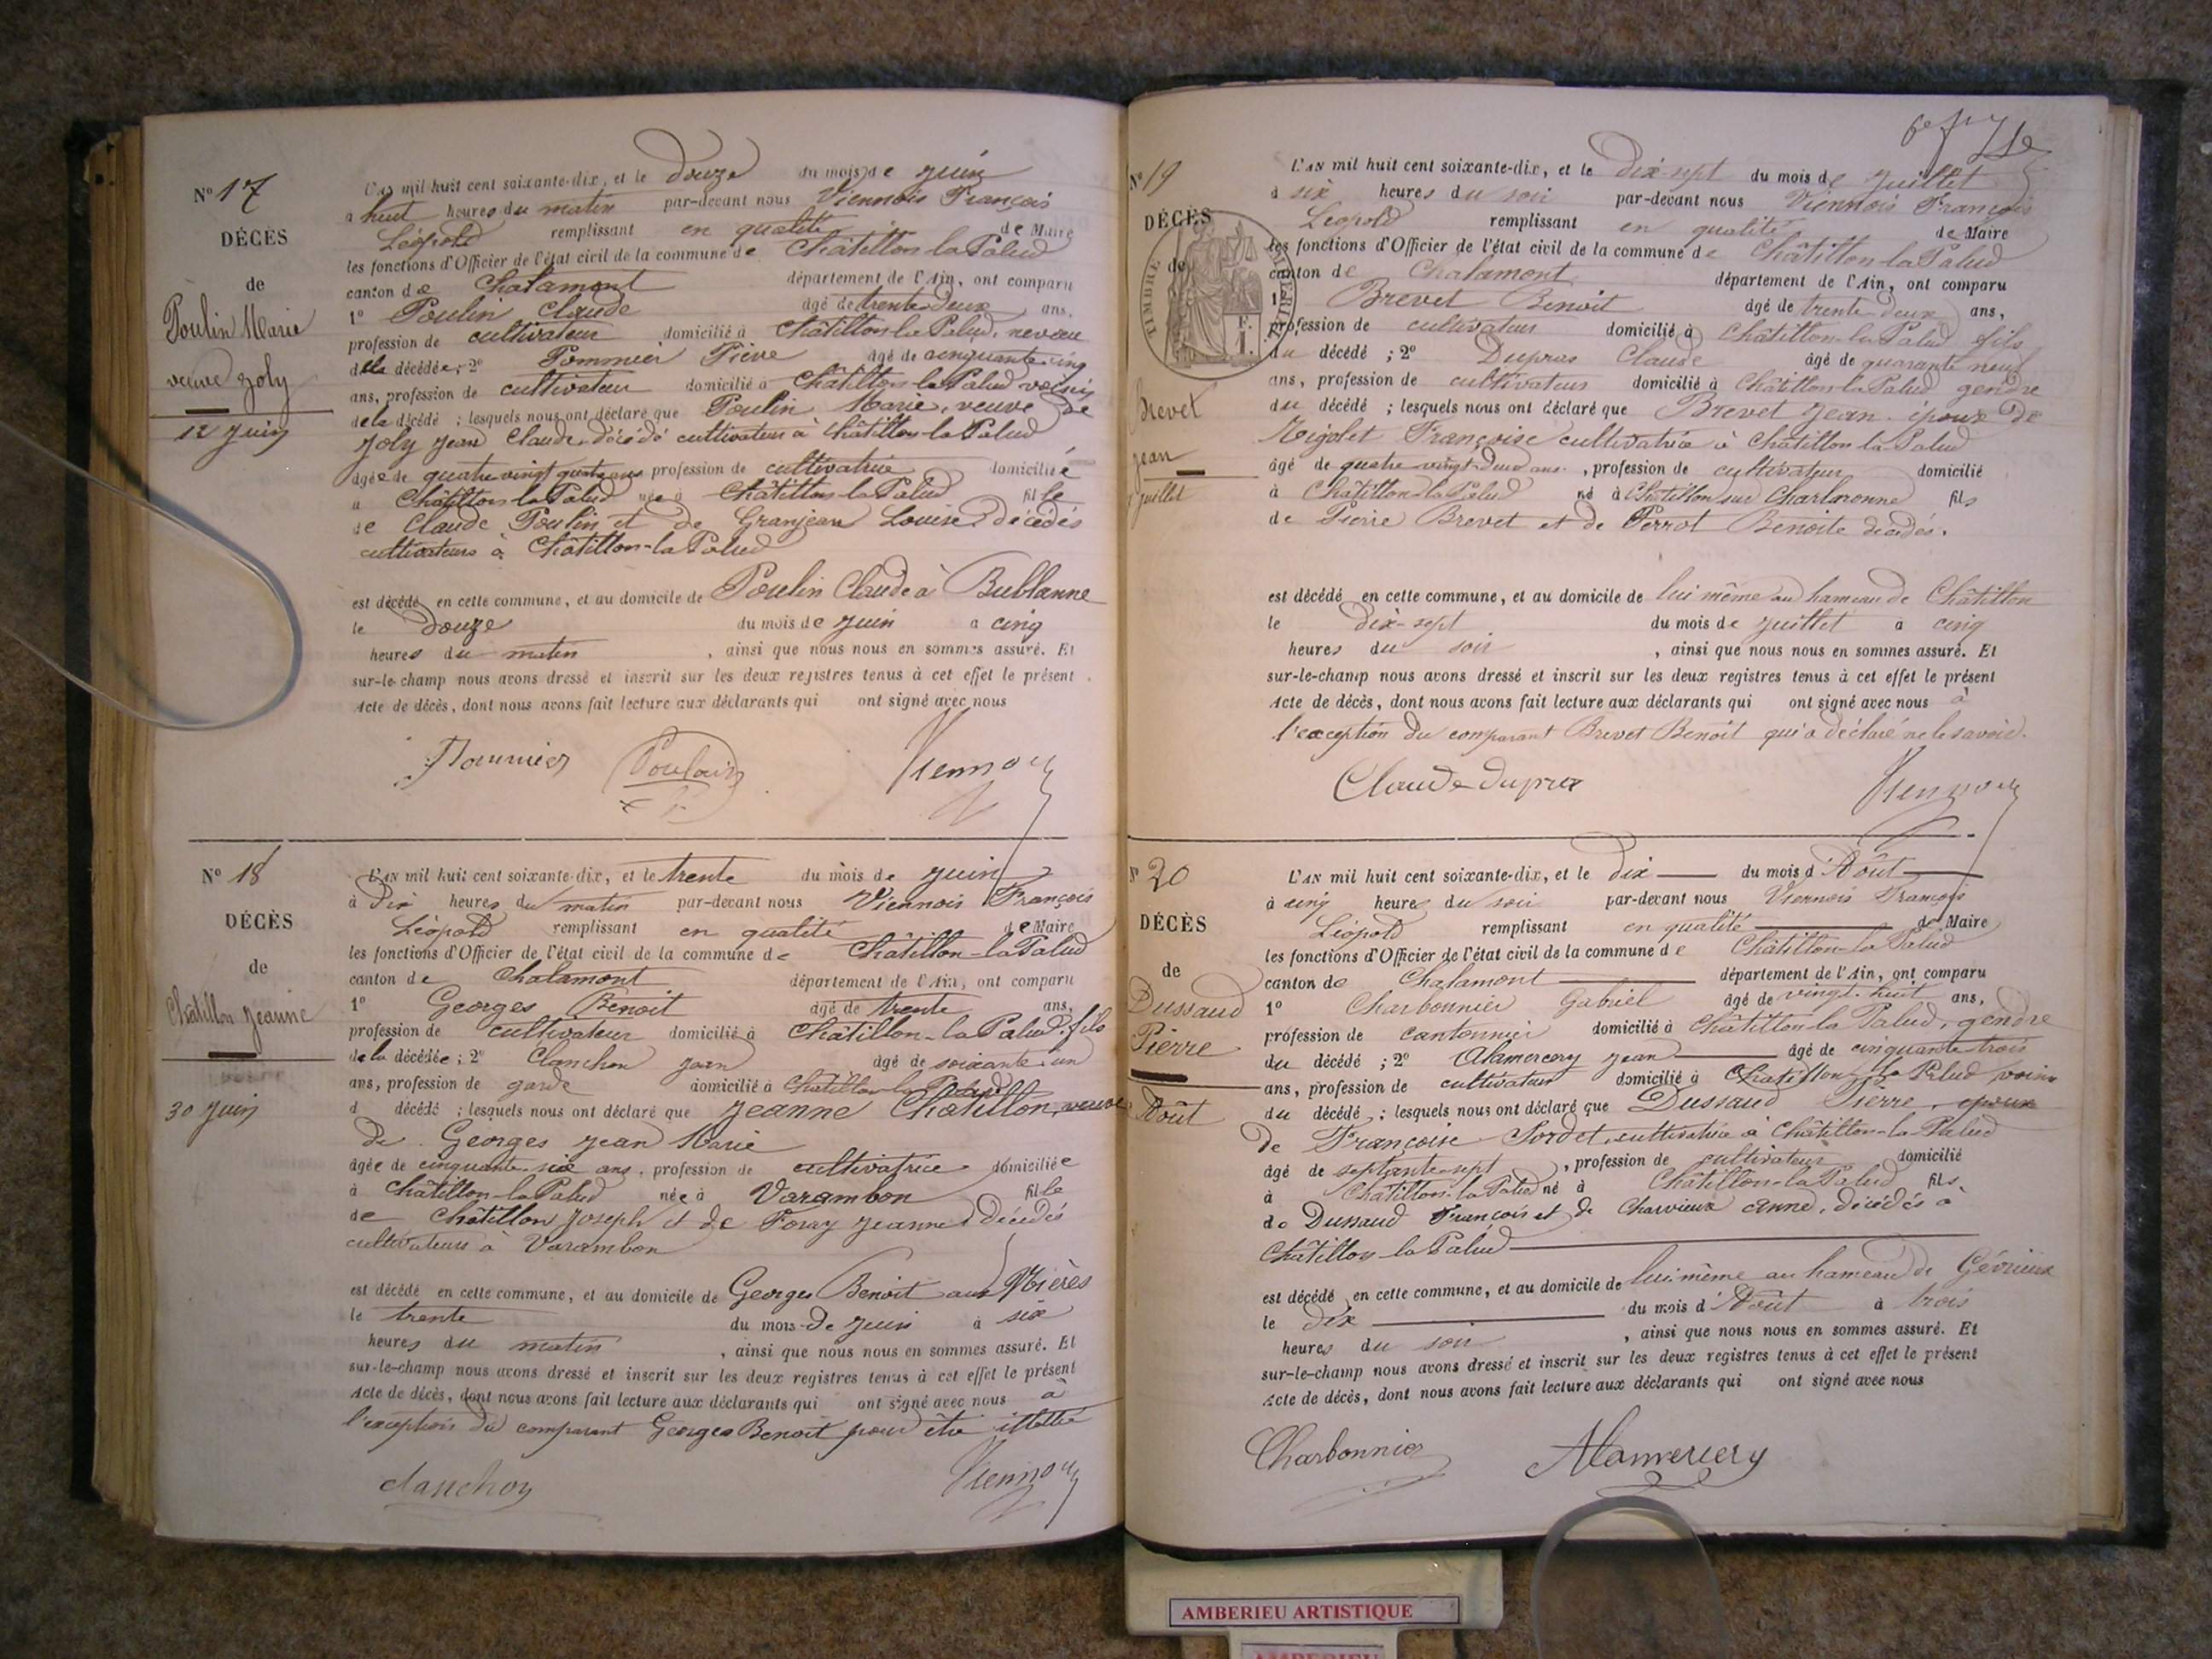 N° 17
DÉCÈS
de
Poulin Marie
veuve Joly
12 Juin
L'AN mil huit cent soixante-dix, et le douze du mois de Juin
à huit heures du matin par-devant nous Viennois François
Léopold remplissant en qualité de Maire
les fonctions d'Officier de l'état civil de la commune de Châtillon-la-Palud
canton de Chalamont département de l'Ain, ont comparu
1° Poulin Claude âgé de trente-deux ans,
profession de cultivateur domicilié à Châtillon-la-Palud, neveu
de la décédée; 2° Pommier Pierre âgé de cinquante cinq
ans, profession de cultivateur domicilié à Châtillon-la-Palud voisin
de la décédé ; lesquels nous ont déclaré que Poulin Marie, veuve de
Joly Jean Claude, décédé cultivateur à Châtillon-la-Palud
âgée de quatre vingt quatre ans profession de cultivatrice domiciliée
à Châtillon-la-Palud née à Châtillon-la-Palud fille
de Claude Poulin et de Granjean Louise décédés
cultivateurs à Châtillon-la-Palud
est décédé en cette commune, et au domicile de Poulin Claude à Bublanne
le douze du mois de Juin à cinq
heures du matin , ainsi que nous nous en sommes assuré. Et
sur-le-champ nous avons dressé et inscrit sur les deux registres tenus à cet effet le présent
Acte de décès, dont nous avons fait lecture aux déclarants qui ont signé avec nous
Poulain Viennois
N° 18
DÉCÈS
de
Châtillon Jeanne
30 Juin
L'AN mil huit cent soixante-dix, et le trente du mois de Juin
à Dix heures du matin par-devant nous Viennois François
Léopold remplissant en qualité de Maire
les fonctions d'Officier de l'état civil de la commune de Châtillon-la-Palud
canton de Chalamont département de l'Ain, ont comparu
1° Georges Benoit âgé de trente ans,
profession de cultivateur domicilié à Châtillon-la-Palud, fils
de la décédée; 2° Clanchon Jean âgé de soixante un
ans, profession de garde domicilié à Châtillon-la-Palud
d décédé ; lesquels nous ont déclaré que Jeanne Châtillon, veuve
de Georges Jean Marie
âgée de cinquante-six ans, profession de cultivatrice domiciliée
à Châtillon-la-Palud née à Varambon fille
de Châtillon Joseph et de Foury Jeanne décédés
cultivateurs à Varambon
est décédé en cette commune, et au domicile de Georges Benoit aux
le trente du mois de Juin à six
heures du matin , ainsi que nous nous en sommes assuré. Et
sur-le-champ nous avons dressé et inscrit sur les deux registres tenus à cet effet le présent
Acte de décès, dont nous avons fait lecture aux déclarants qui ont signé avec nous à
l'exception du comparant Georges Benoit pour être illettré
clanchon Viennois
N° 19
DÉCÈS
de
Brevet
Jean
juillet
TIMBRE
L'AN mil huit cent soixante-dix, et le dix-sept du mois de Juillet
à six heures du soir par-devant nous Viennois François
Léopold remplissant en qualité de Maire
les fonctions d'Officier de l'état civil de la commune de Châtillon-la-Palud
canton de Chalamont département de l'Ain, ont comparu
1° Brevet Benoit âgé de trente deux ans,
profession de cultivateur domicilié à Châtillon-la-Palud fils
du décédé ; 2° Dupras Claude âgé de quarante neuf
ans, profession de cultivateur domicilié à Châtillon-la-Palud gendre
du décédé ; lesquels nous ont déclaré que Brevet Jean époux de
Rigolet Françoise cultivatrice à Châtillon-la-Palud
âgé de quatre vingt-deux ans, profession de cultivateur domicilié
à Châtillon-la-Palud né à Châtillon sur Charlaronne fils
de Pierre Brevet et de Perrot Benoite décédés.
est décédé en cette commune, et au domicile de lui même au hameau de Châtillon
le dix-sept du mois de Juillet à cinq
heures du soir , ainsi que nous nous en sommes assuré. Et
sur-le-champ nous avons dressé et inscrit sur les deux registres tenus à cet effet le présent
Acte de décès, dont nous avons fait lecture aux déclarants qui ont signé avec nous à
l'exception du comparant Brevet Benoit qui a déclaré ne le savoir.
Claude dupras Viennois
N° 20
DÉCÈS
de
Dussaud
Pierre
Août
L'AN mil huit cent soixante-dix, et le dix du mois d'Août
à cinq heures du soir par-devant nous Viennois François
Léopold remplissant en qualité de Maire
les fonctions d'Officier de l'état civil de la commune de Châtillon-la-Palud
canton de Chalamont département de l'Ain, ont comparu
1° Charbonnier Gabriel âgé de vingt-huit ans,
profession de cantonnier domicilié à Châtillon-la-Palud, gendre
du décédé ; 2° Alamercery Jean âgé de cinquante trois
ans, profession de cultivateur domicilié à Châtillon-la-Palud voisin
du décédé ; lesquels nous ont déclaré que Dussaud Pierre, époux
de Françoise Sordet, cultivatrice à Châtillon-la-Palud
âgé de septante-sept , profession de cultivateur domicilié
à Châtillon-la-Palud né à Châtillon-la-Palud fils
de Dussaud François et de Charvieux Anne, décédés à
Châtillon-la-Palud
est décédé en cette commune, et au domicile de lui même au hameau de Gévrieux
le dix du mois d'Août à trois
heures du soir , ainsi que nous nous en sommes assuré. Et
sur-le-champ nous avons dressé et inscrit sur les deux registres tenus à cet effet le présent
Acte de décès, dont nous avons fait lecture aux déclarants qui ont signé avec nous
Charbonnier Alamercery
AMBERIEU ARTISTIQUE
AMBERIEU